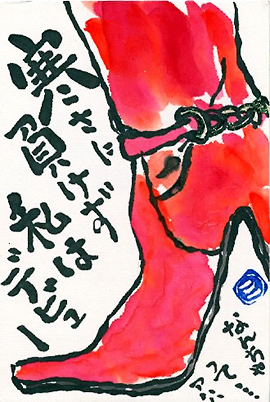 寒さに
負けず
私は
デビュー
なんちゃ
って....